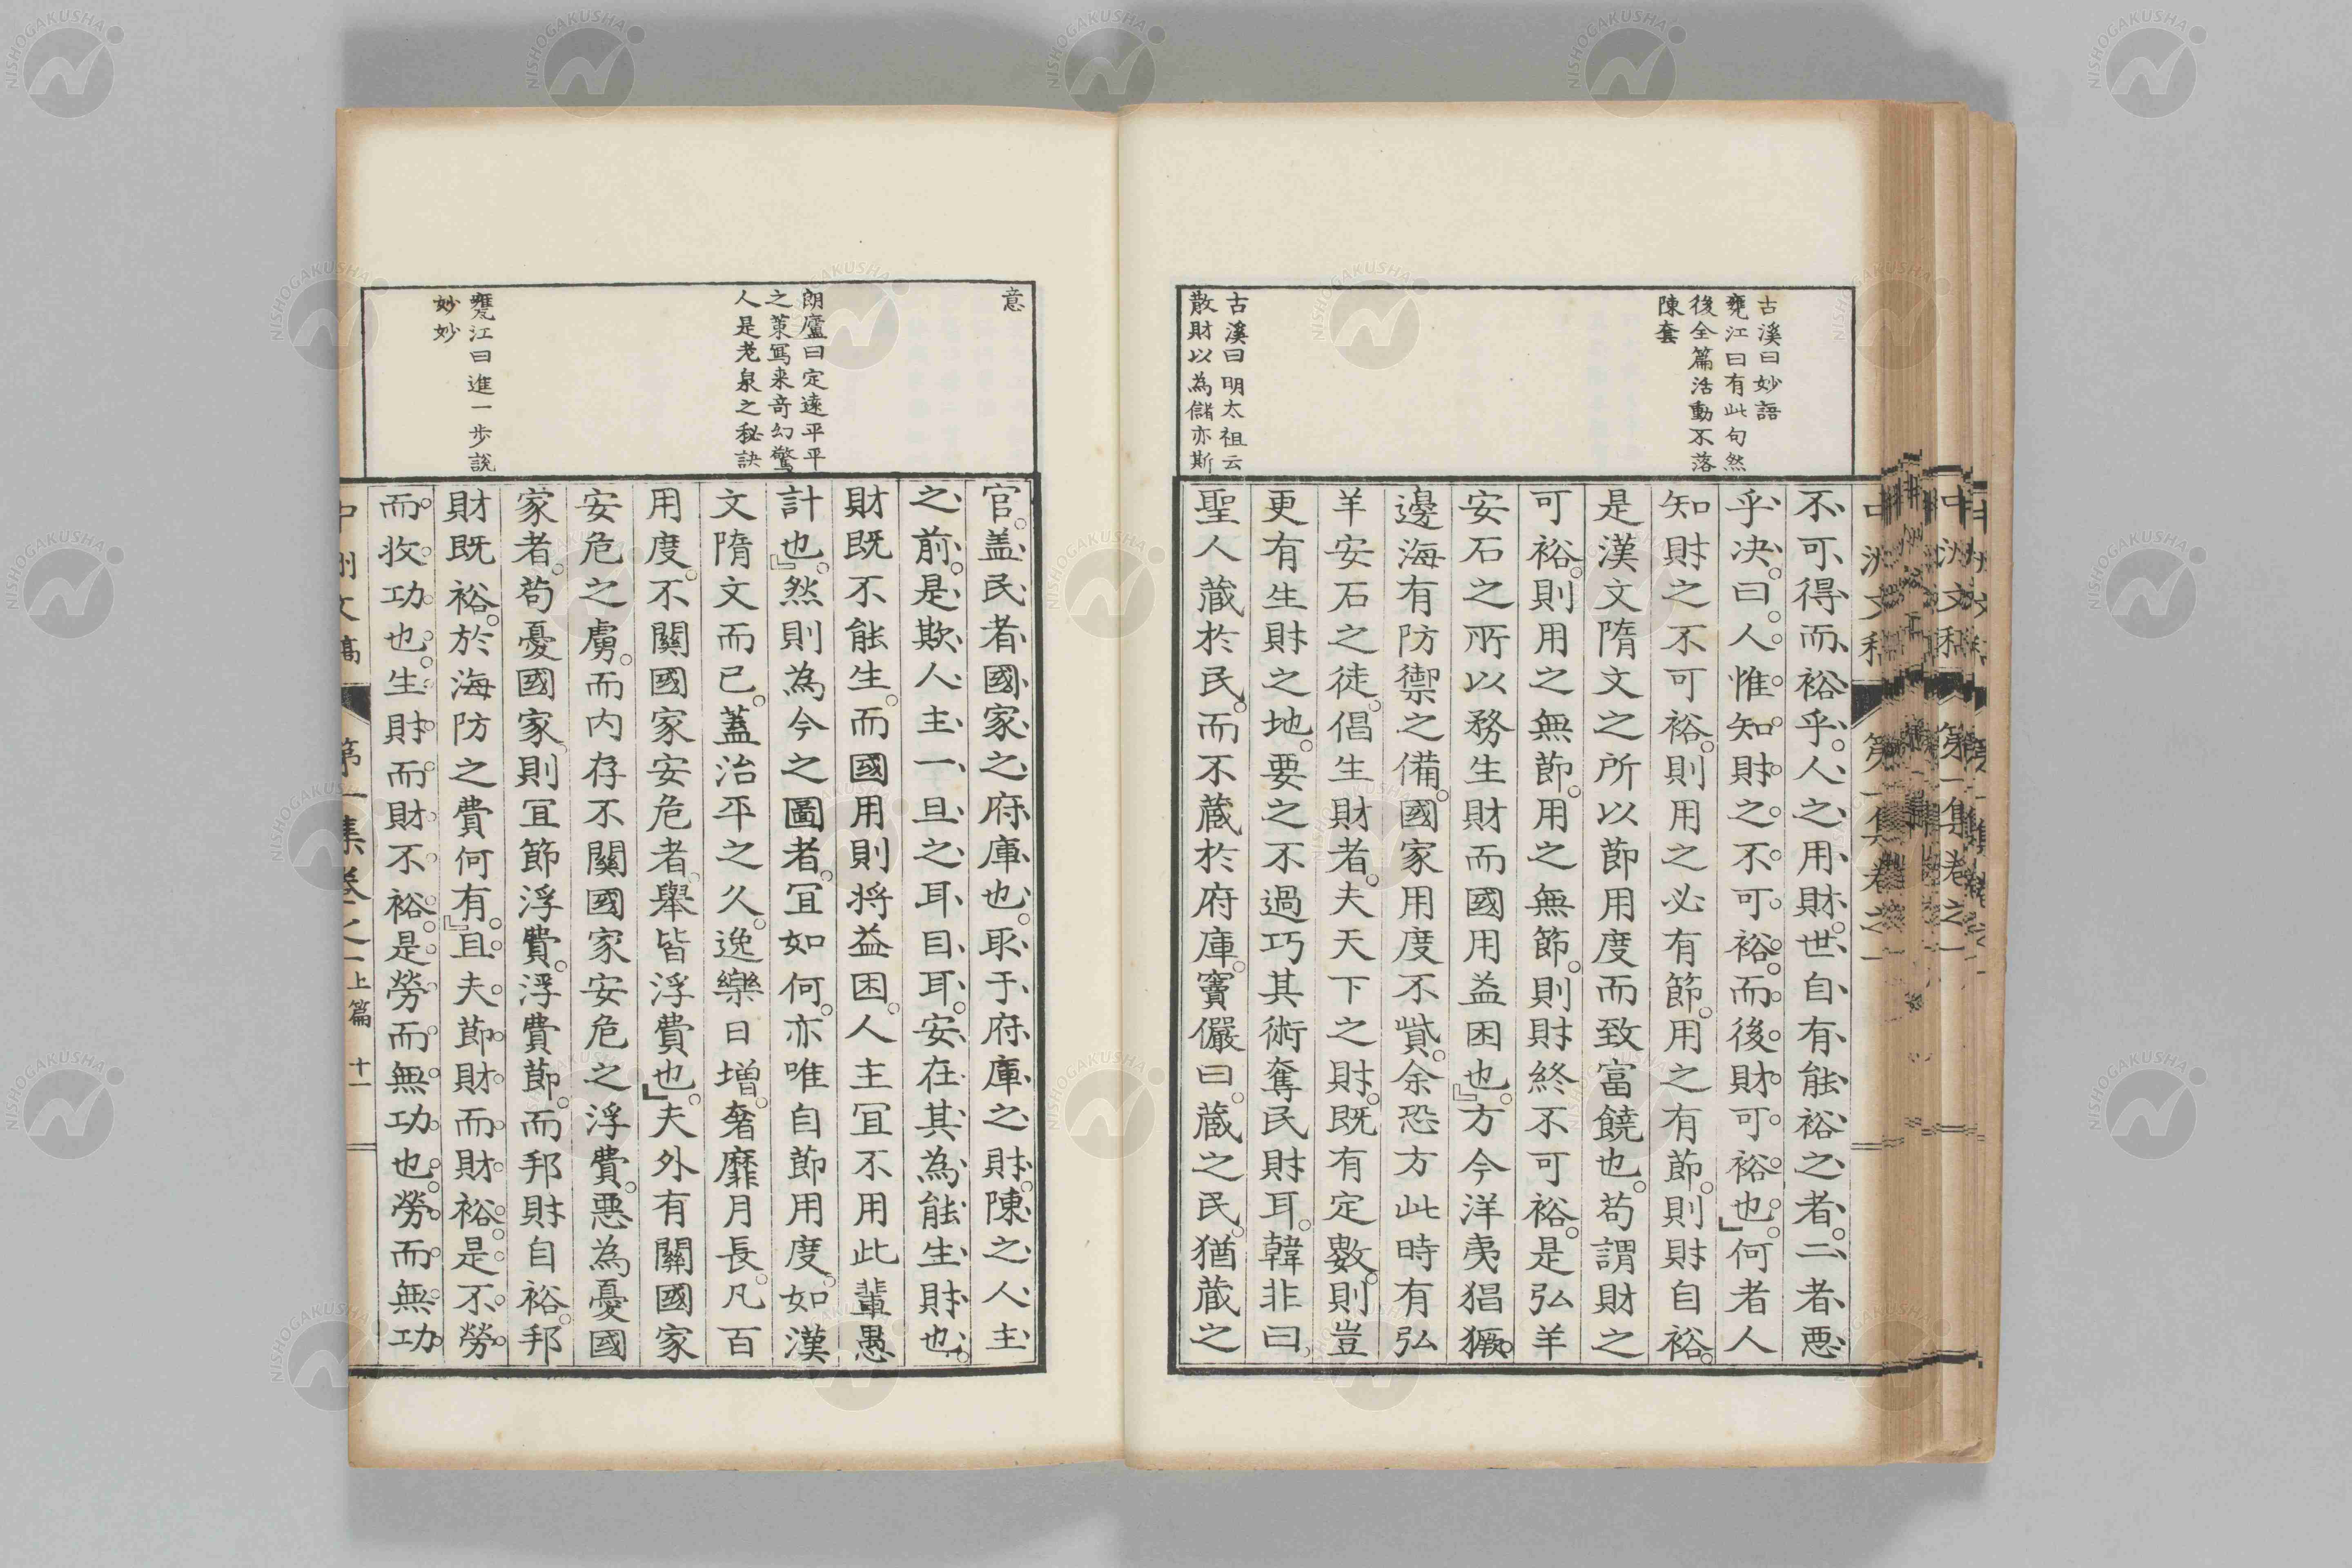 古溪曰妙語
甕江曰有此句然
後全篇活動不落
陳套
古溪曰明太祖云
散財以為儲亦斯
不可得而裕乎。人之用財。世自有能裕之者。二者惡
乎決。曰。人惟知財之不可裕。而後財可裕也。』何者人
知財之不可裕。則用之必有節。用之有節。則財自裕。
是漢文隋文之所以節用度而致富饒也。苟謂財之
可裕。則用之無節。用之無節。則財終不可裕。是弘羊
安石之所以務生財而國用益困也。』方今洋夷猖獗。
邊海有防禦之備。國家用度不貲。余恐方此時有弘
羊安石之徒。倡生財者。夫天下之財。既有定數。則豈
更有生財之地。要之不過巧其術奪民財耳。韓非曰。
聖人藏於民。而不藏於府庫。竇儼曰。藏之民。猶藏之
中洲文稿 第一集卷之一
意
朗廬曰定遠平平
之策寫来奇幻驚
人是老泉之秘訣
甕江曰進一歩說
妙妙
官。盖民者國家之府庫也。取于府庫之財。陳之人主
之前。是欺人主一旦之耳目耳。安在其為能生財也。
財既不能生。而國用則將益困。人主宜不用此輩愚
計也。』然則為今之圖者。宜如何。亦唯自節用度。如漢
文隋文而已。蓋治平之久。逸樂日增。奢靡月長。凡百
用度。不關國家安危者。舉皆浮費也。』夫外有關國家
安危之虜。而内存不關國家安危之浮費。惡為憂國
家者。苟憂國家。則宜節浮費。浮費節。而邦財自裕。邦
財既裕。於海防之費何有。』且夫節財而財裕。是不勞
而收功也。生財而財不裕。是勞而無功也。勞而無功
中洲文稿 第一集卷之一上篇 十一
NISHOGAKUSHA